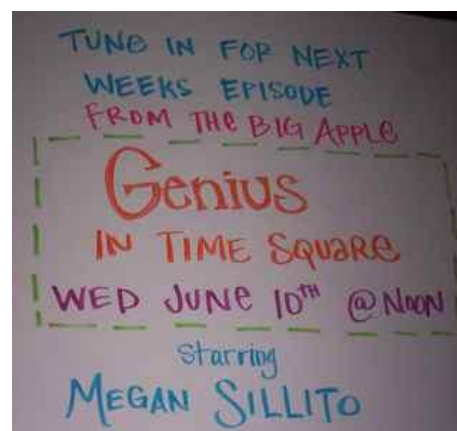 TUNe IN FOR NEXT
WEEKS EPISODE
FROM THe BIG APPLe
Genius
IN TIME SQUaRe
WED JUNe 10TH @ NOON
Starring
MEGAN SILLITO